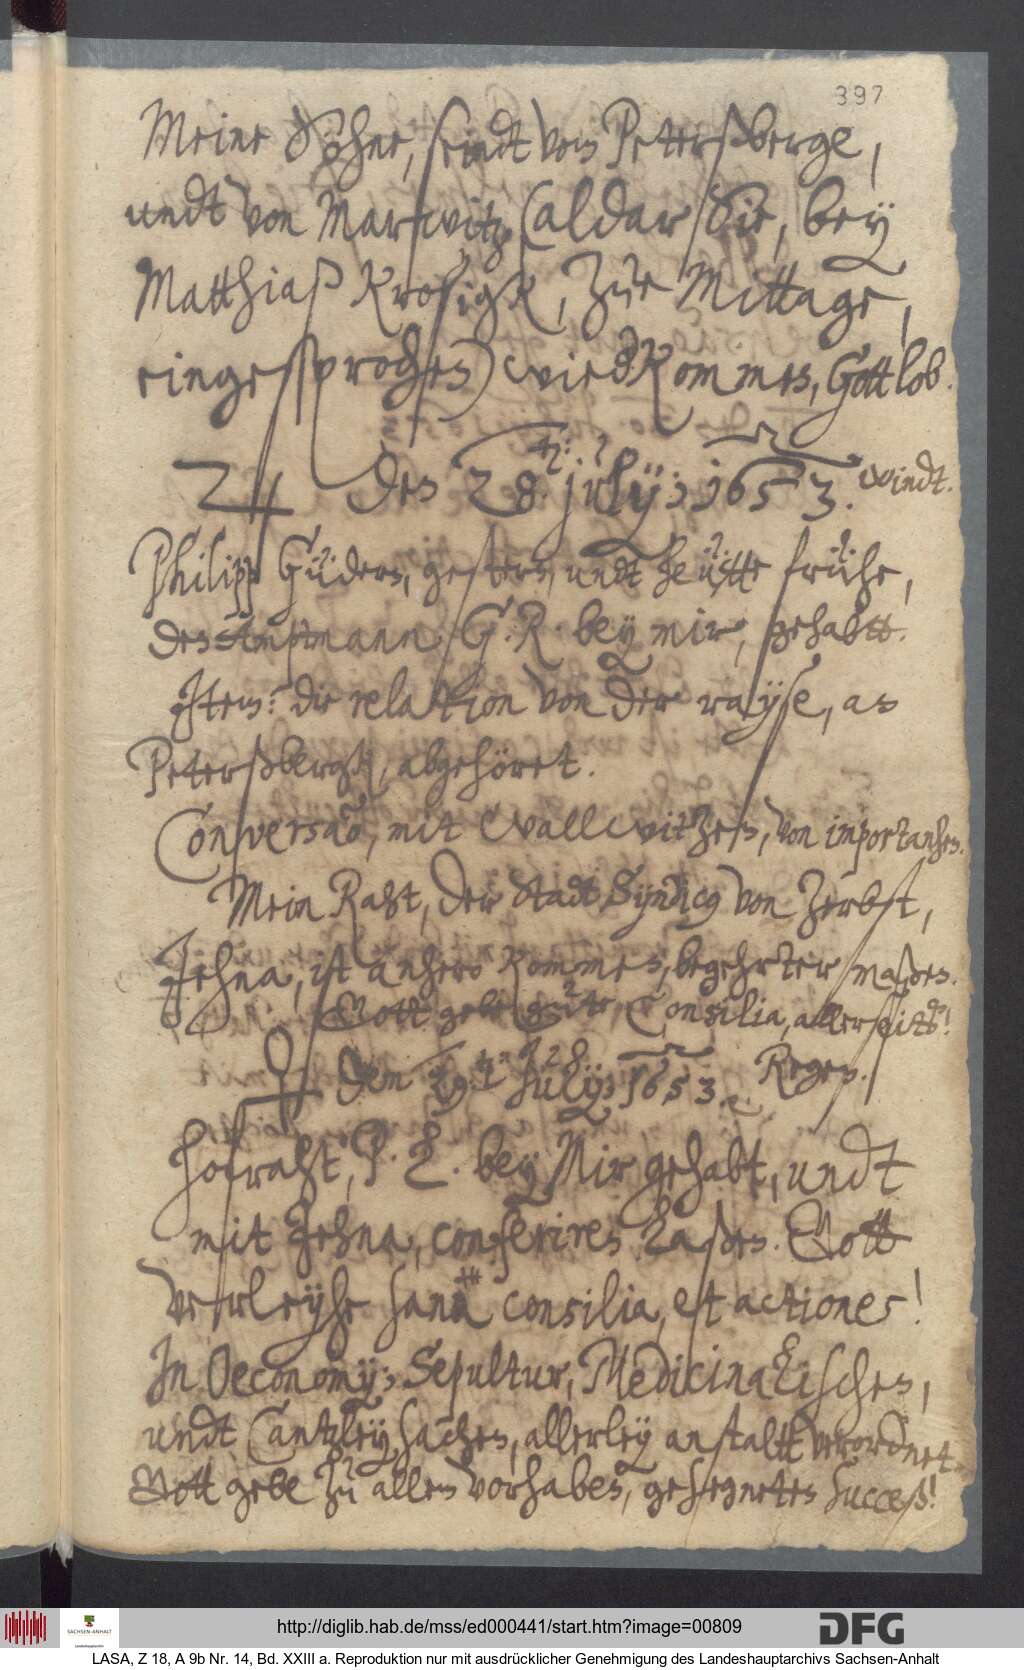 397
Meine Söhne, seindt vom Petersberge,
undt von Marwitz (aldar Sie, bey
Matthiaß Krosigk, zur Mittage,
eingesprochen) wiedkommen, Gott lob.
♃ den 28.ten: July; 1653. windt.
Philipp Güder, gestern, undt heütte frühe,
den Amptmann G. R. bey mir, gehabtt.
Item: die relation von der rayse, as
Petersbergk, abgehöret.
Conversaõ, mit Wallwitzen, von importantzen.
Mein Raht, der Stadt Syndicus von Zerbst,
Jehna, ist anhero kommen, begehrter maßen.
Gott gebe gute Consilia, allerseits!
♀ Den 29.ten July; 1653. Regen.
Hofraht, P. L. bey Mir gehabt, undt
mit Jehna, conferiren laßen. Gott
verleyhe sana consilia, et actiones!
In Oeconomy; Sepultur, Medicinalischen,
undt Cantzley sachen, allerley anstaltt verordnet.
Gott gebe zu allem vorhaben, gesegneten succeß!
SACHSEN-ANHALT
http://diglib.hab.de/mss/ed000441/start.htm?image=00809
DFG
LASA, Z 18, A 9b Nr. 14, Bd. XXIII a. Reproduktion nur mit ausdrücklicher Genehmigung des Landeshauptarchivs Sachsen-Anhalt